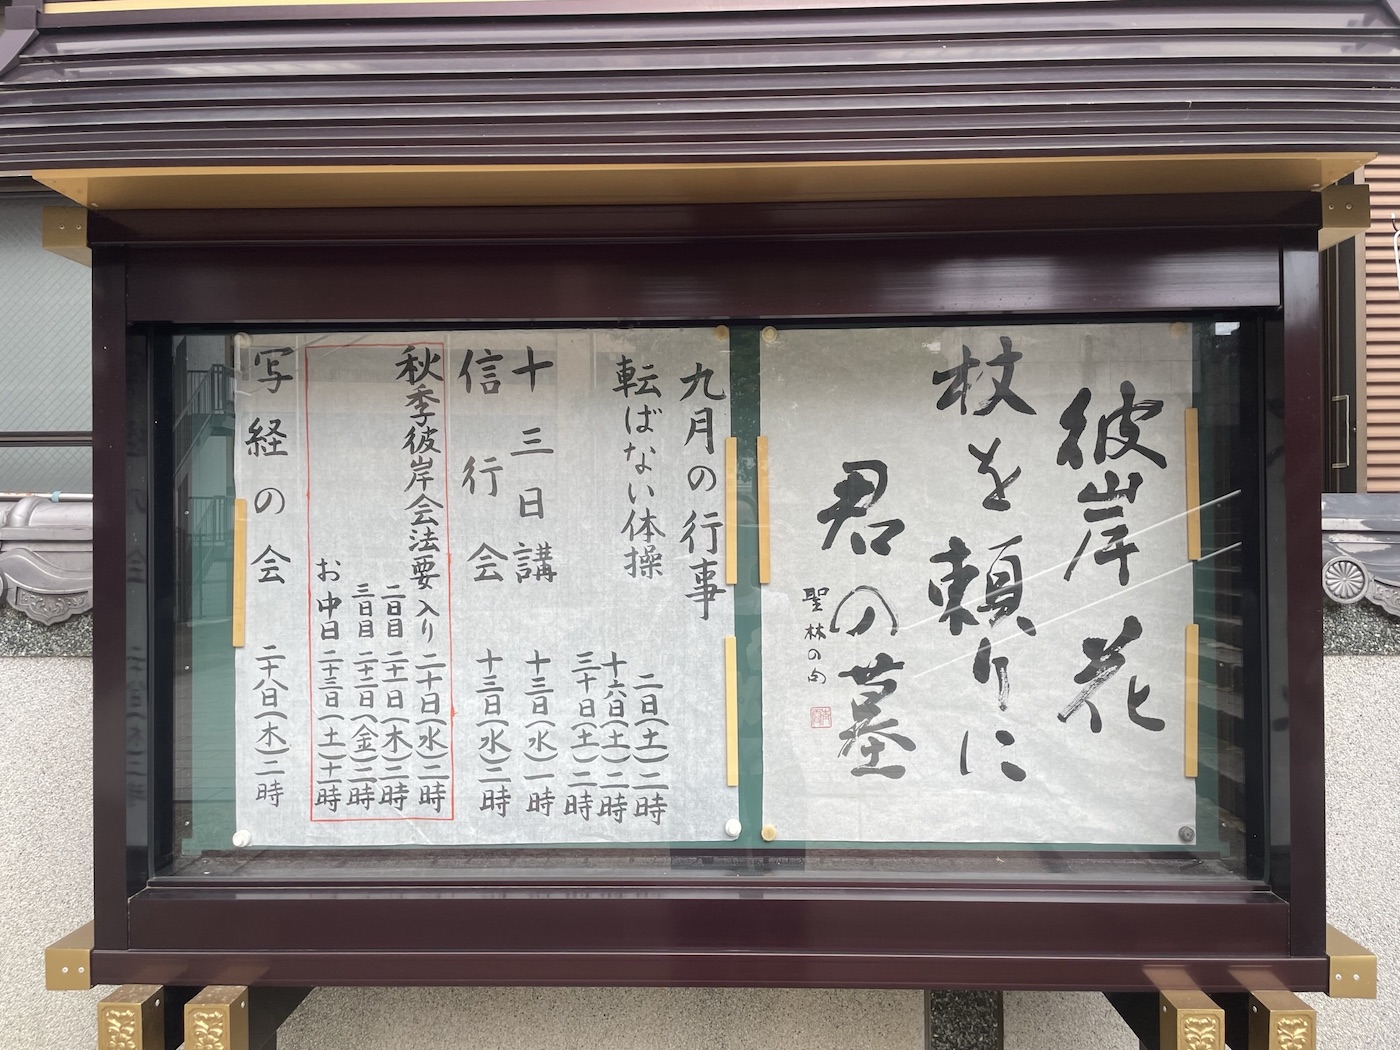 彼岸花
杖を頼りに
君の墓
聖林の句
九月の行事
転ばない体操
二日(土)二時
十六日(土)二時
三十日(土)二時
十三日講 十三日(水)一時
信行会 十三日(水)二時
秋季彼岸会法要 入り 二十日(水)二時
二日目 二十一日(木)二時
三日目 二十二日(金)二時
お中日 二十三日(土)十一時
写経の会 二十八日(木)二時